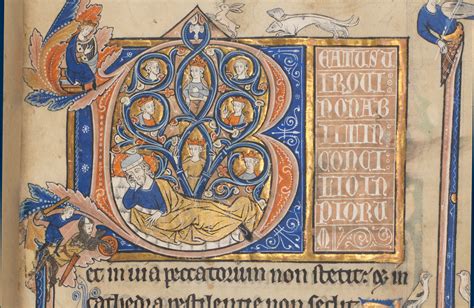 BEATUS U
IR QUI
NON AB
IIT IN
CONCI
LIO IN
PIORU
M
et in uia peccatorum non stetit: et in
cathedra pestilentie non sedit